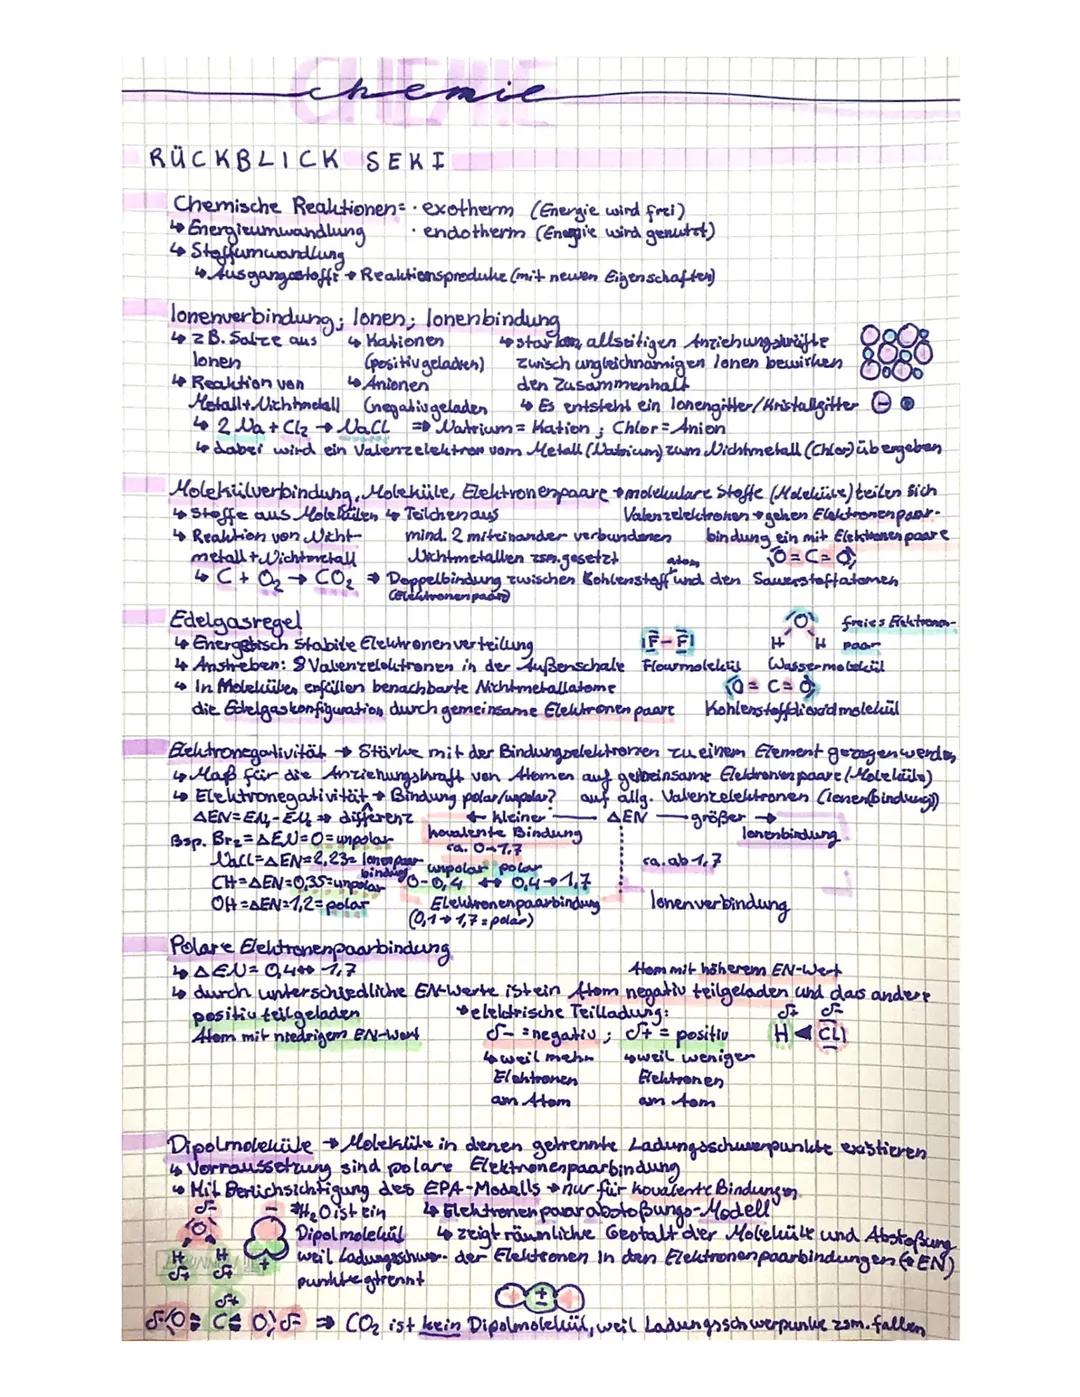 CHEMIE
chemie
RÜCKBLICK SEKI
Chemische Reaktionen= · exotherm (Energie wird frei)
↳ Energieumwandlung · endotherm (Energie wird genutzt)
↳ Stoffumwandlung
↳ Ausgangsstoffe → Reaktionsprodukte (mit neuen Eigenschaften)
Ionenverbindung; Ionen; Ionenbindung
↳ z B. Salze aus Ionen
↳ Reaktion von Metall + Nichtmetall
↳ Kationen (positiv geladen)
↳ Anionen (negativ geladen
↳ starken, allseitigen Anziehungskräfte
zwisch ungleichnamigen Ionen bewirken
den Zusammenhalt
↳ Es entsteht ein Ionengitter/Kristallgitter
↳ 2 Na + Cl₂ → NaCl ⇒ Natrium = Kation ; Chlor = Anion
↳ dabei wird ein Valenzelektron vom Metall (Natrium) zum Nichtmetall (Chlor) übergeben
Molekülverbindung, Moleküle, Elektronenpaare → molekulare Stoffe (Moleküle) teilen sich
Valenzelektronen → gehen Elektronenpaar-
bindung ein mit Elektronenpaare
↳ Stoffe aus Molekülen
↳ Reaktion von Nicht-
metall + Nichtmetall
↳ Teilchen aus
mind. 2 miteinander verbundenen
Nichtmetallen zsm. gesetzt
O = C = O
↳ C + O₂ → CO₂ ⇒ Doppelbindung zwischen Kohlenstoffatom und den Sauerstoffatomen
(Elektronenpaare)
Edelgasregel
↳ Energetisch stabile Elektronenverteilung
↳ Anstreben: 8 Valenzelektronen in der Außenschale
↳ In Molekülen erfüllen benachbarte Nichtmetallatome
die Edelgaskonfiguration durch gemeinsame Elektronenpaare
F - F
Flourmolekül
O
H H
Wassermolekül
freies Elektronen-
paar
O = C = O
Kohlenstoffdioxidmolekül
Elektronegativität → Stärke mit der Bindungselektronen zu einem Element gezogen werden
↳ Maß für die Anziehungskraft von Atomen auf gemeinsame Elektronenpaare (Moleküle)
↳ Elektronegativität → Bindung polar/unpolar? auf allg. Valenzelektronen (Ionen(bindung))
ΔEN = EN₁ - EN₂ ⇒ differenz
← kleiner — ΔEN — größer →
Bsp. Br₂ = ΔEN = 0 = unpolar
NaCl = ΔEN = 2,23 = Ionenpaar
bindung
CH = ΔEN = 0,35 = unpolar
OH = ΔEN = 1,2 = polar
kovalente Bindung
ca. 0→1,7
unpolar polar
0-0,4 ↔ 0,4→1,7
Elektronenpaarbindung
(0,1→1,7 = polar)
Ionenbindung
ca. ab 1,7
Ionenverbindung
Polare Elektronenpaarbindung
↳ ΔEN = 0,4 ↔ 1,7
Atom mit höherem EN-Wert
↳ durch unterschiedliche EN-Werte ist ein Atom negativ teilgeladen und das andere
positiv teilgeladen
Atom mit niedrigem EN-Wert
→ elektrische Teilladung:
δ- = negativ ; δ+ = positiv
↳ weil mehr
Elektronen
am Atom
↳ weil weniger
Elektronen
am Atom
δ+ δ-
H ◀ Cl
Dipolmoleküle → Moleküle in denen getrennte Ladungsschwerpunkte existieren
↳ Vorraussetzung sind polare Elektronenpaarbindung
↳ Mit Berücksichtigung des EPA-Modells → nur für kovalente Bindungen
↳ Elektronenpaarabstoßungs-Modell
↳ zeigt räumliche Gestalt der Moleküle und Abstoßung
der Elektronen in den Elektronenpaarbindungen (→ EN)
δ-
O
H H
δ+ δ+
-
+
H₂O ist ein
Dipolmolekül
weil Ladungsschwer-
punkte getrennt
+
-
δ+
δ- O = C = O δ- ⇒ CO₂ ist kein Dipolmolekül, weil Ladungsschwerpunkte zsm. fallen